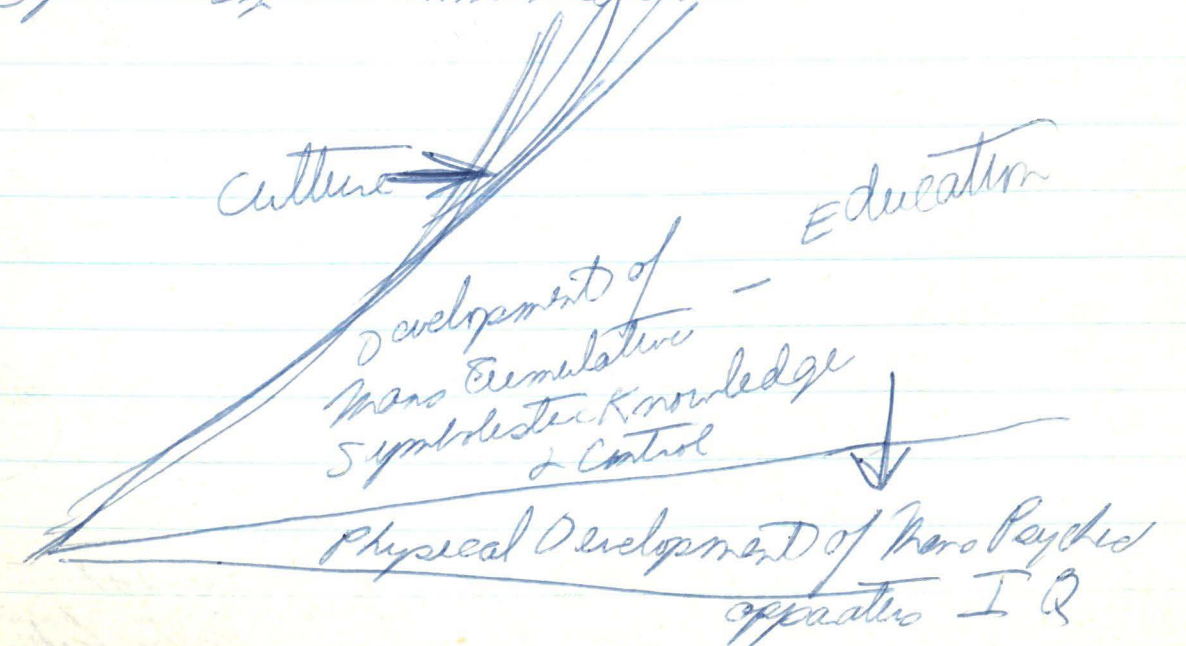 Culture
Education
Development of —
Mans Cumulative
Symbolistic Knowledge
& Control
Physical Development of Mans Psychic
appaatus I Q